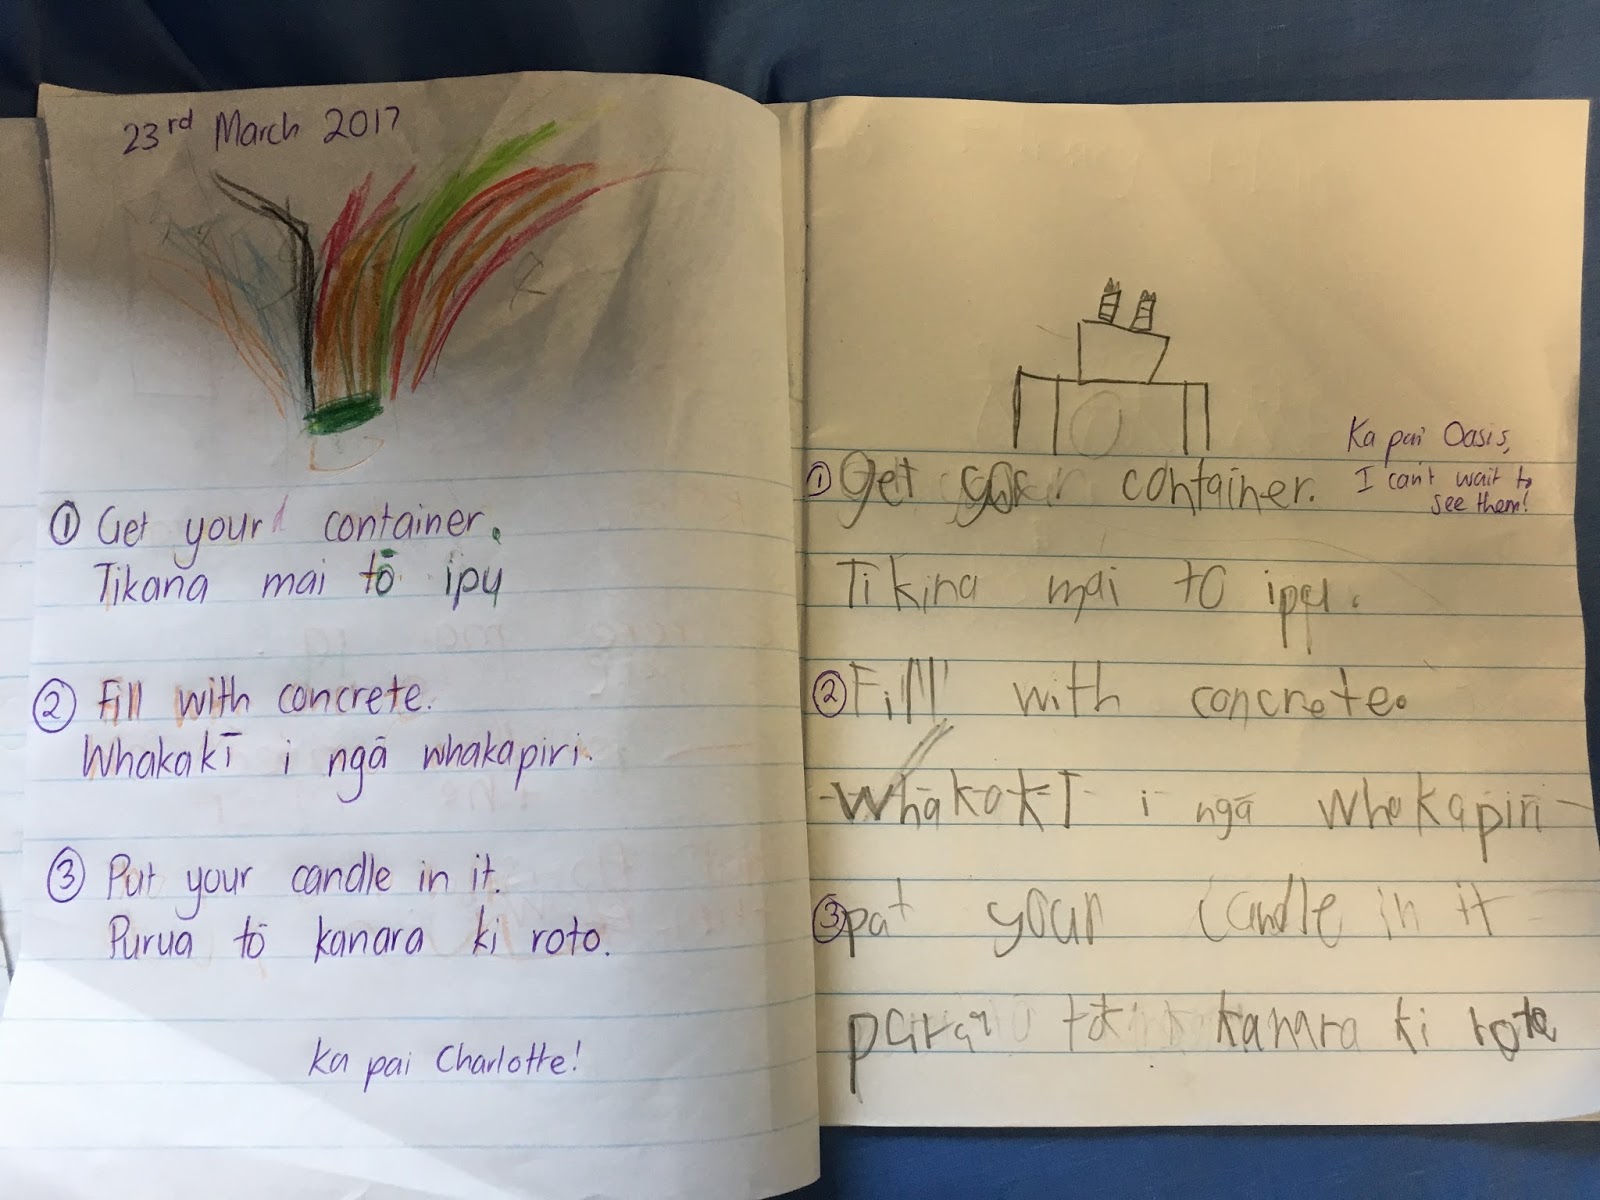 23rd March 2017
① Get your container.
Tikana mai tō ipu
② Fill with concrete.
Whakakī i ngā whakapiri.
③ Put your candle in it.
Purua tō kanara ki roto.
Ka pai Charlotte!
Ka pai Oasis,
I can't wait to
see them!
① Get your container.
Tikina mai to ipu.
② Fill with concrete.
Whakaki i ngā whakapiri
③ pat your candle in it
kanara ki roto